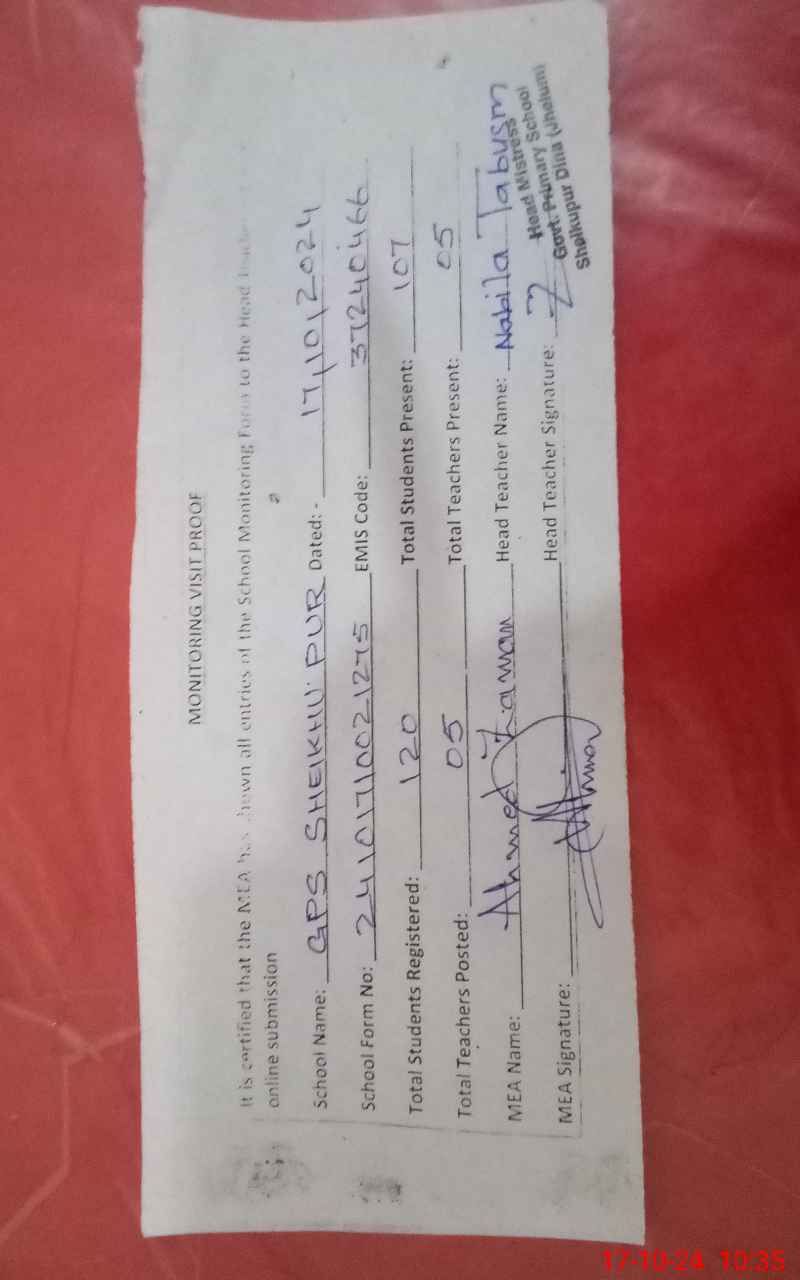 MONITORING VISIT PROOF
It is certified that the MEA has shown all entries of the School Monitoring Form to the Head Teacher
online submission
School Name: GPS SHEIKHU PUR Dated: - 17/10/2024
School Form No: 24101710021275 EMIS Code: 37240466
Total Students Registered: 120 Total Students Present: 107
Total Teachers Posted: 05 Total Teachers Present: 05
MEA Name: Ahmed Zaman Head Teacher Name: Nabila Tabusm
MEA Signature: Head Teacher Signature:
Head Mistress
Govt. Primary School
Sheikupur Dina (Jhelum)
17-10-24 10:35